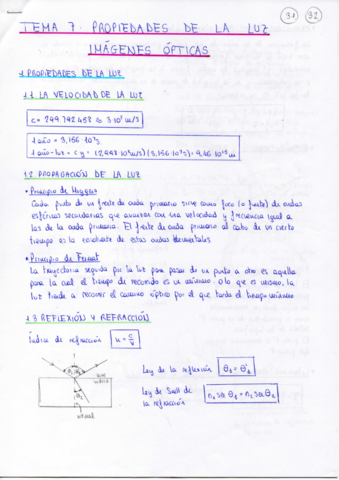 31 32
TEMA 7: PROPIEDADES DE LA LUZ
IMÁGENES ÓPTICAS
1. PROPIEDADES DE LA LUZ
1.1. LA VELOCIDAD DE LA LUZ
c = 299.792.458 ≈ 3·10⁸ m/s
1 año = 3,156·10⁷s
1 año-luz = c·y = (2,998·10⁸m/s)(3,156·10⁷s) = 9,46·10¹⁵m
1.2. PROPAGACIÓN DE LA LUZ
• Principio de Huygens
Cada punto de un frente de onda primario sirve como foco (o fuente) de ondas
esféricas secundarias que avanzan con una velocidad y frecuencia igual a
las de la onda primaria. El frente de onda primario al cabo de un cierto
tiempo es la envolvente de estas ondas elementales
• Principio de Fermat
La trayectoria seguida por la luz para pasar de un punto a otro es aquella
para la cual el tiempo de recorrido es un mínimo. O lo que es lo mismo, la
luz tiende a recorrer el camino óptico por el que tarda el tiempo mínimo
1.3 REFLEXIÓN Y REFRACCIÓN
Índice de refracción n = c/v
Ley de la reflexión θ₁ = θ'₁
Ley de Snell de
la refracción n₁ sen θ₁ = n₂ sen θ₂
θ₁ θ'₁
aire
vidrio
θ₂
normal